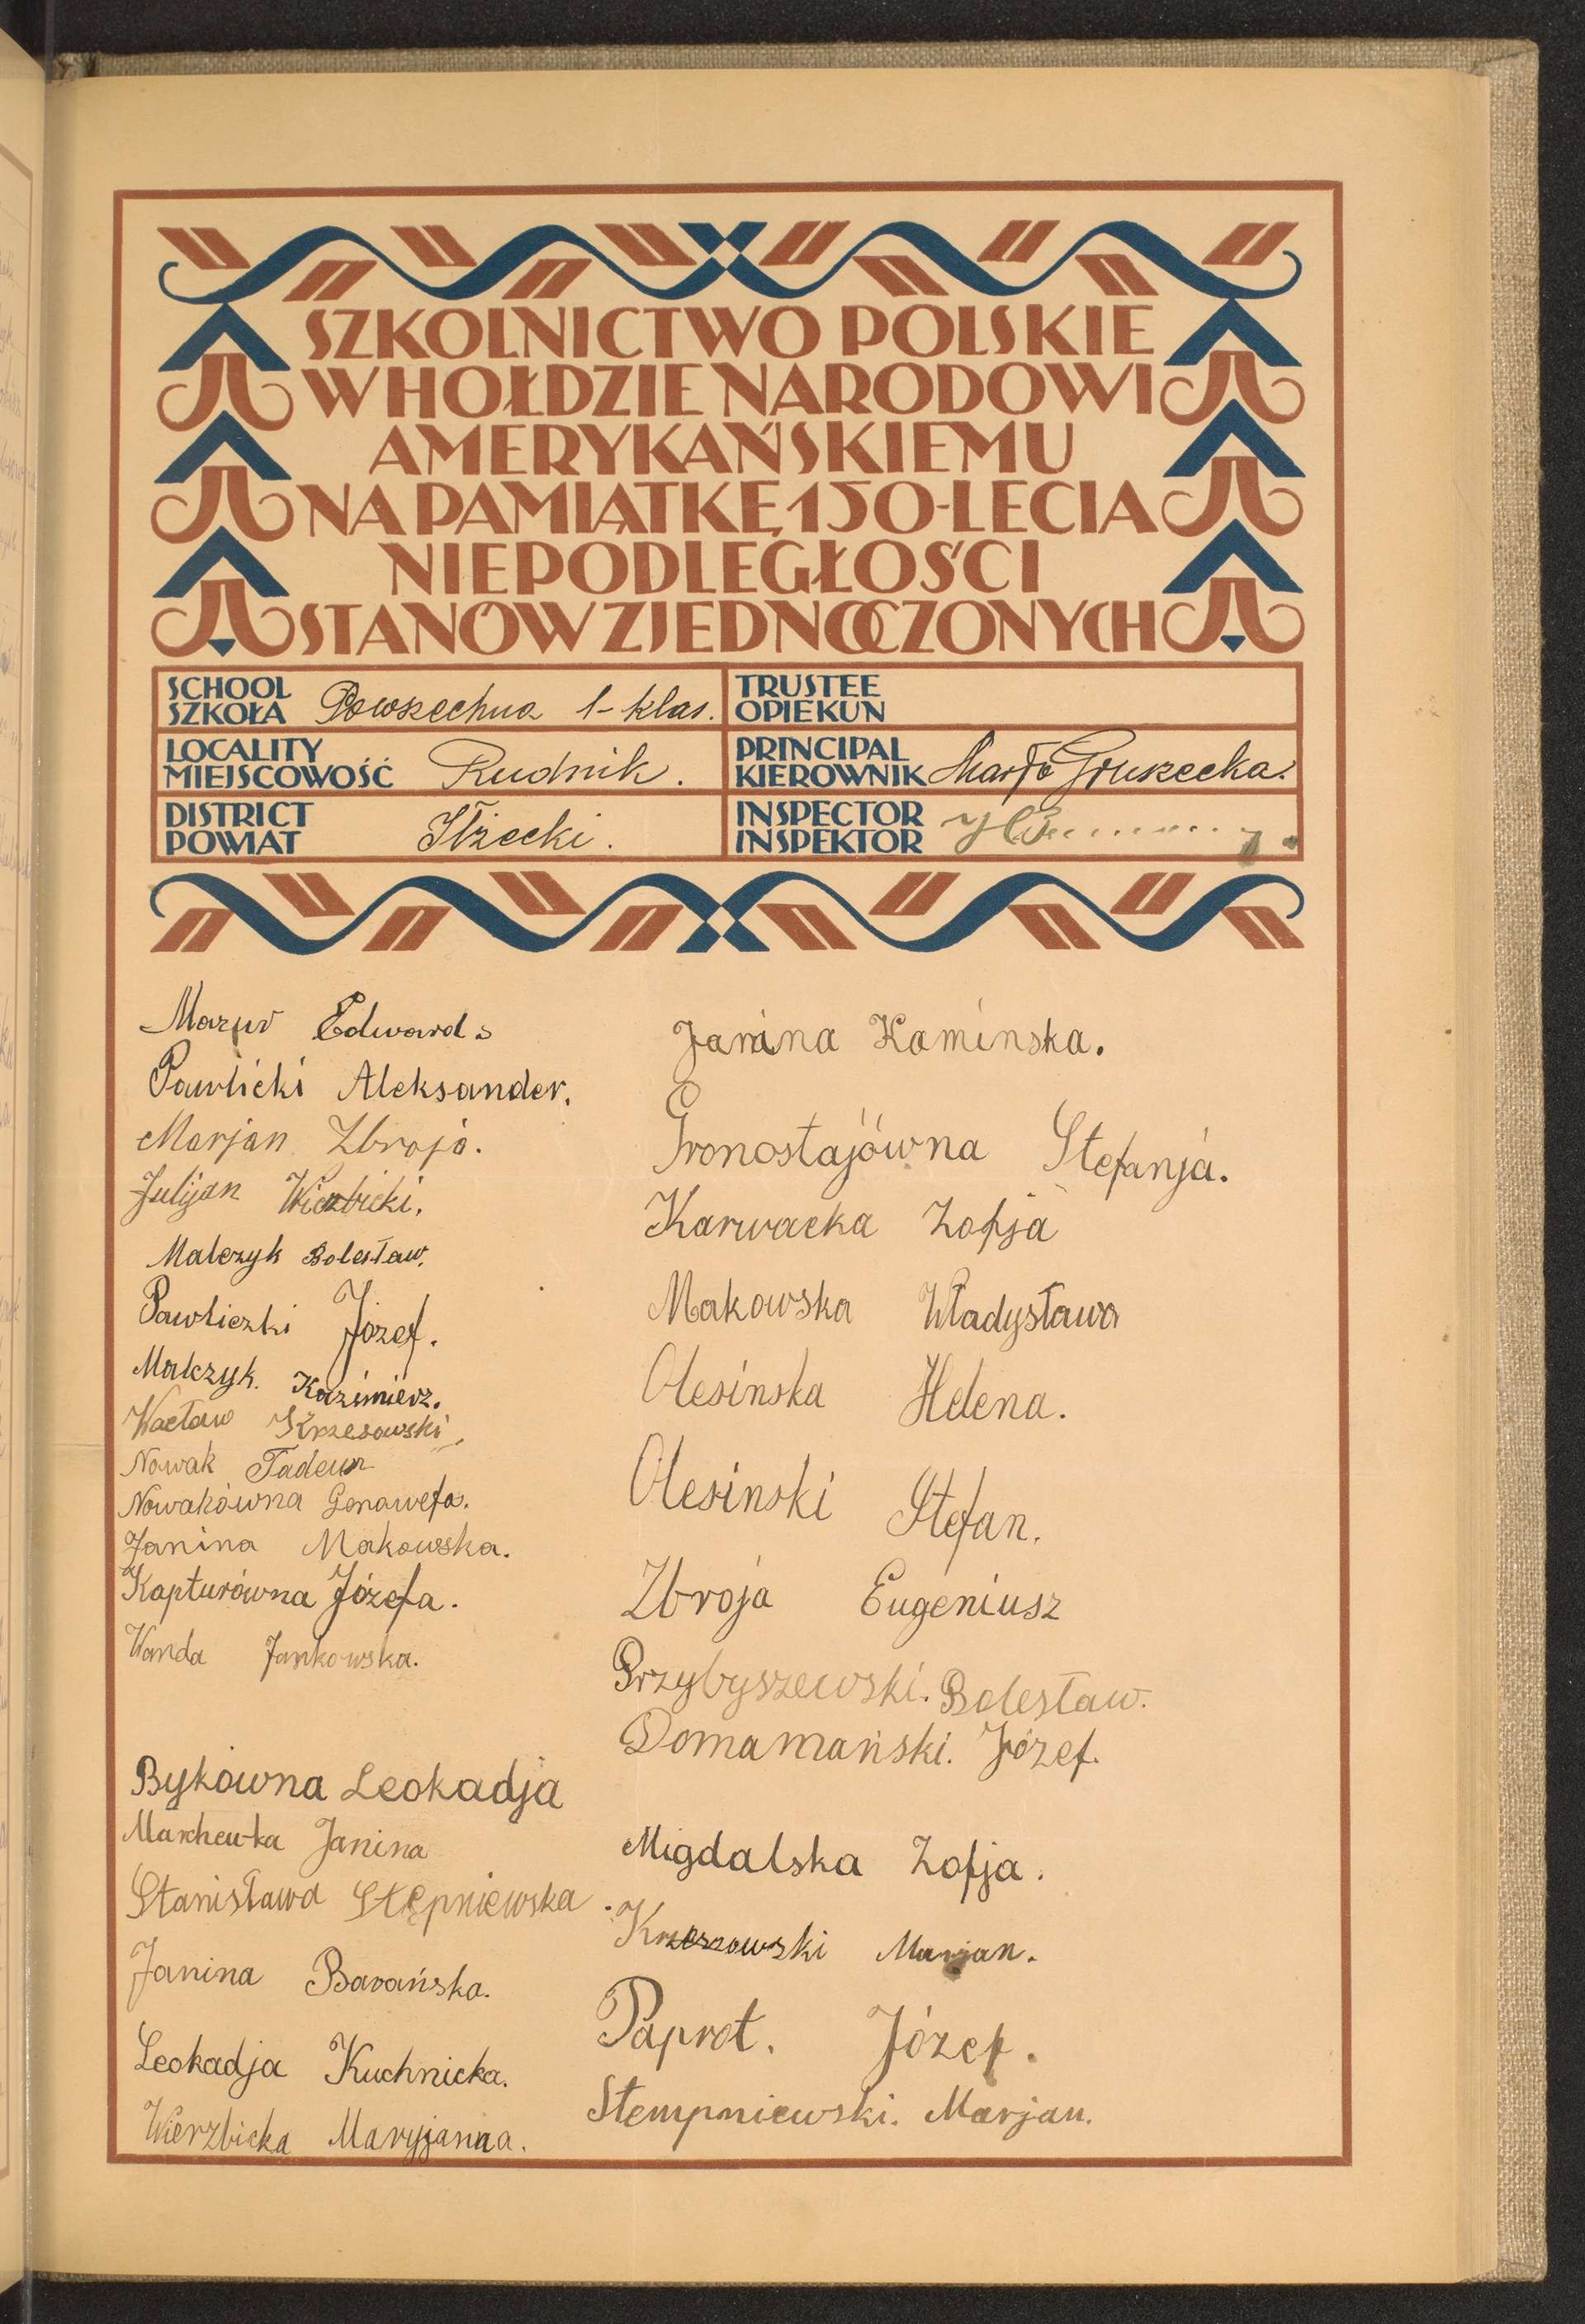 SZKOLNICTWO POLSKIE
W HOŁDZIE NARODOWI
AMERYKAŃSKIEMU
NA PAMIĄTKĘ 150-LECIA
NIEPODLEGŁOŚCI
STANÓW ZJEDNOCZONYCH
SCHOOL
SZKOŁA Powszechna 1-klas.
TRUSTEE
OPIEKUN
LOCALITY
MIEJSCOWOŚĆ Rudnik.
PRINCIPAL
KIEROWNIK Marja Gruszecka.
DISTRICT
POWIAT Iłżecki.
INSPECTOR
INSPEKTOR
Mazur Edward.
Pawlicki Aleksander.
Marjan Zbroja.
Julijan Wierzbicki.
Malczyk Bolesław.
Pawliczki Józef.
Malczyk. Kazimierz.
Wacław Krzesowski.
Nowak Tadeusz
Nowakówna Genowefa.
Janina Makowska.
Kapturówna Józefa.
Wanda Jankowska.
Bykówna Leokadja
Marchewka Janina
Stanisława Stępniewska.
Janina Barańska.
Leokadja Kuchnicka.
Wierzbicka Maryjanna.
Janina Kaminska.
Gronostajówna Stefanja.
Karwacka Zofja
Makowska Władysława
Olesinska Helena.
Olesinski Stefan.
Zbroja Eugeniusz
Przybyszewski. Bolesław.
Domamański. Józef.
Migdalska Zofja.
Krzeszowski Marjan.
Paprot. Józef.
Stempniewski. Marjan.